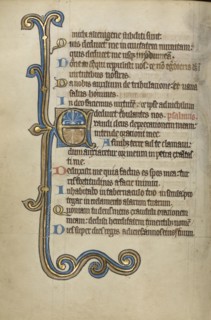 michi alienigene subditi sunt.
Quis deducet me in ciuitatem munitam:
quis deducet me usque in ydumeam.
Nonne tu deus qui repulisti nos: et non egredieris
uirtutibus nostris.
Da nobis auxilium de tribulatione: et uana
salus hominis.
In deo faciemus uirtutem: et ipse ad nichilum
deducet tribulantes nos. psalmus
Exaudi deus deprecationem meam:
intende orationi mee.
A finibus terre ad te clamaui:
dum anxiaretur cor meum in petra exaltasti
ti me.
Deduxisti me quia factus es spes mea: tur
ris fortitudinis a facie inimici.
Inhabitabo in tabernaculo tuo in secula: pro
tegar in uelamento alarum tuarum.
Quoniam tu deus meus exaudisti orationem
meam: dedisti hereditatem timentibus nomen
Dies super dies regis adicies: annos